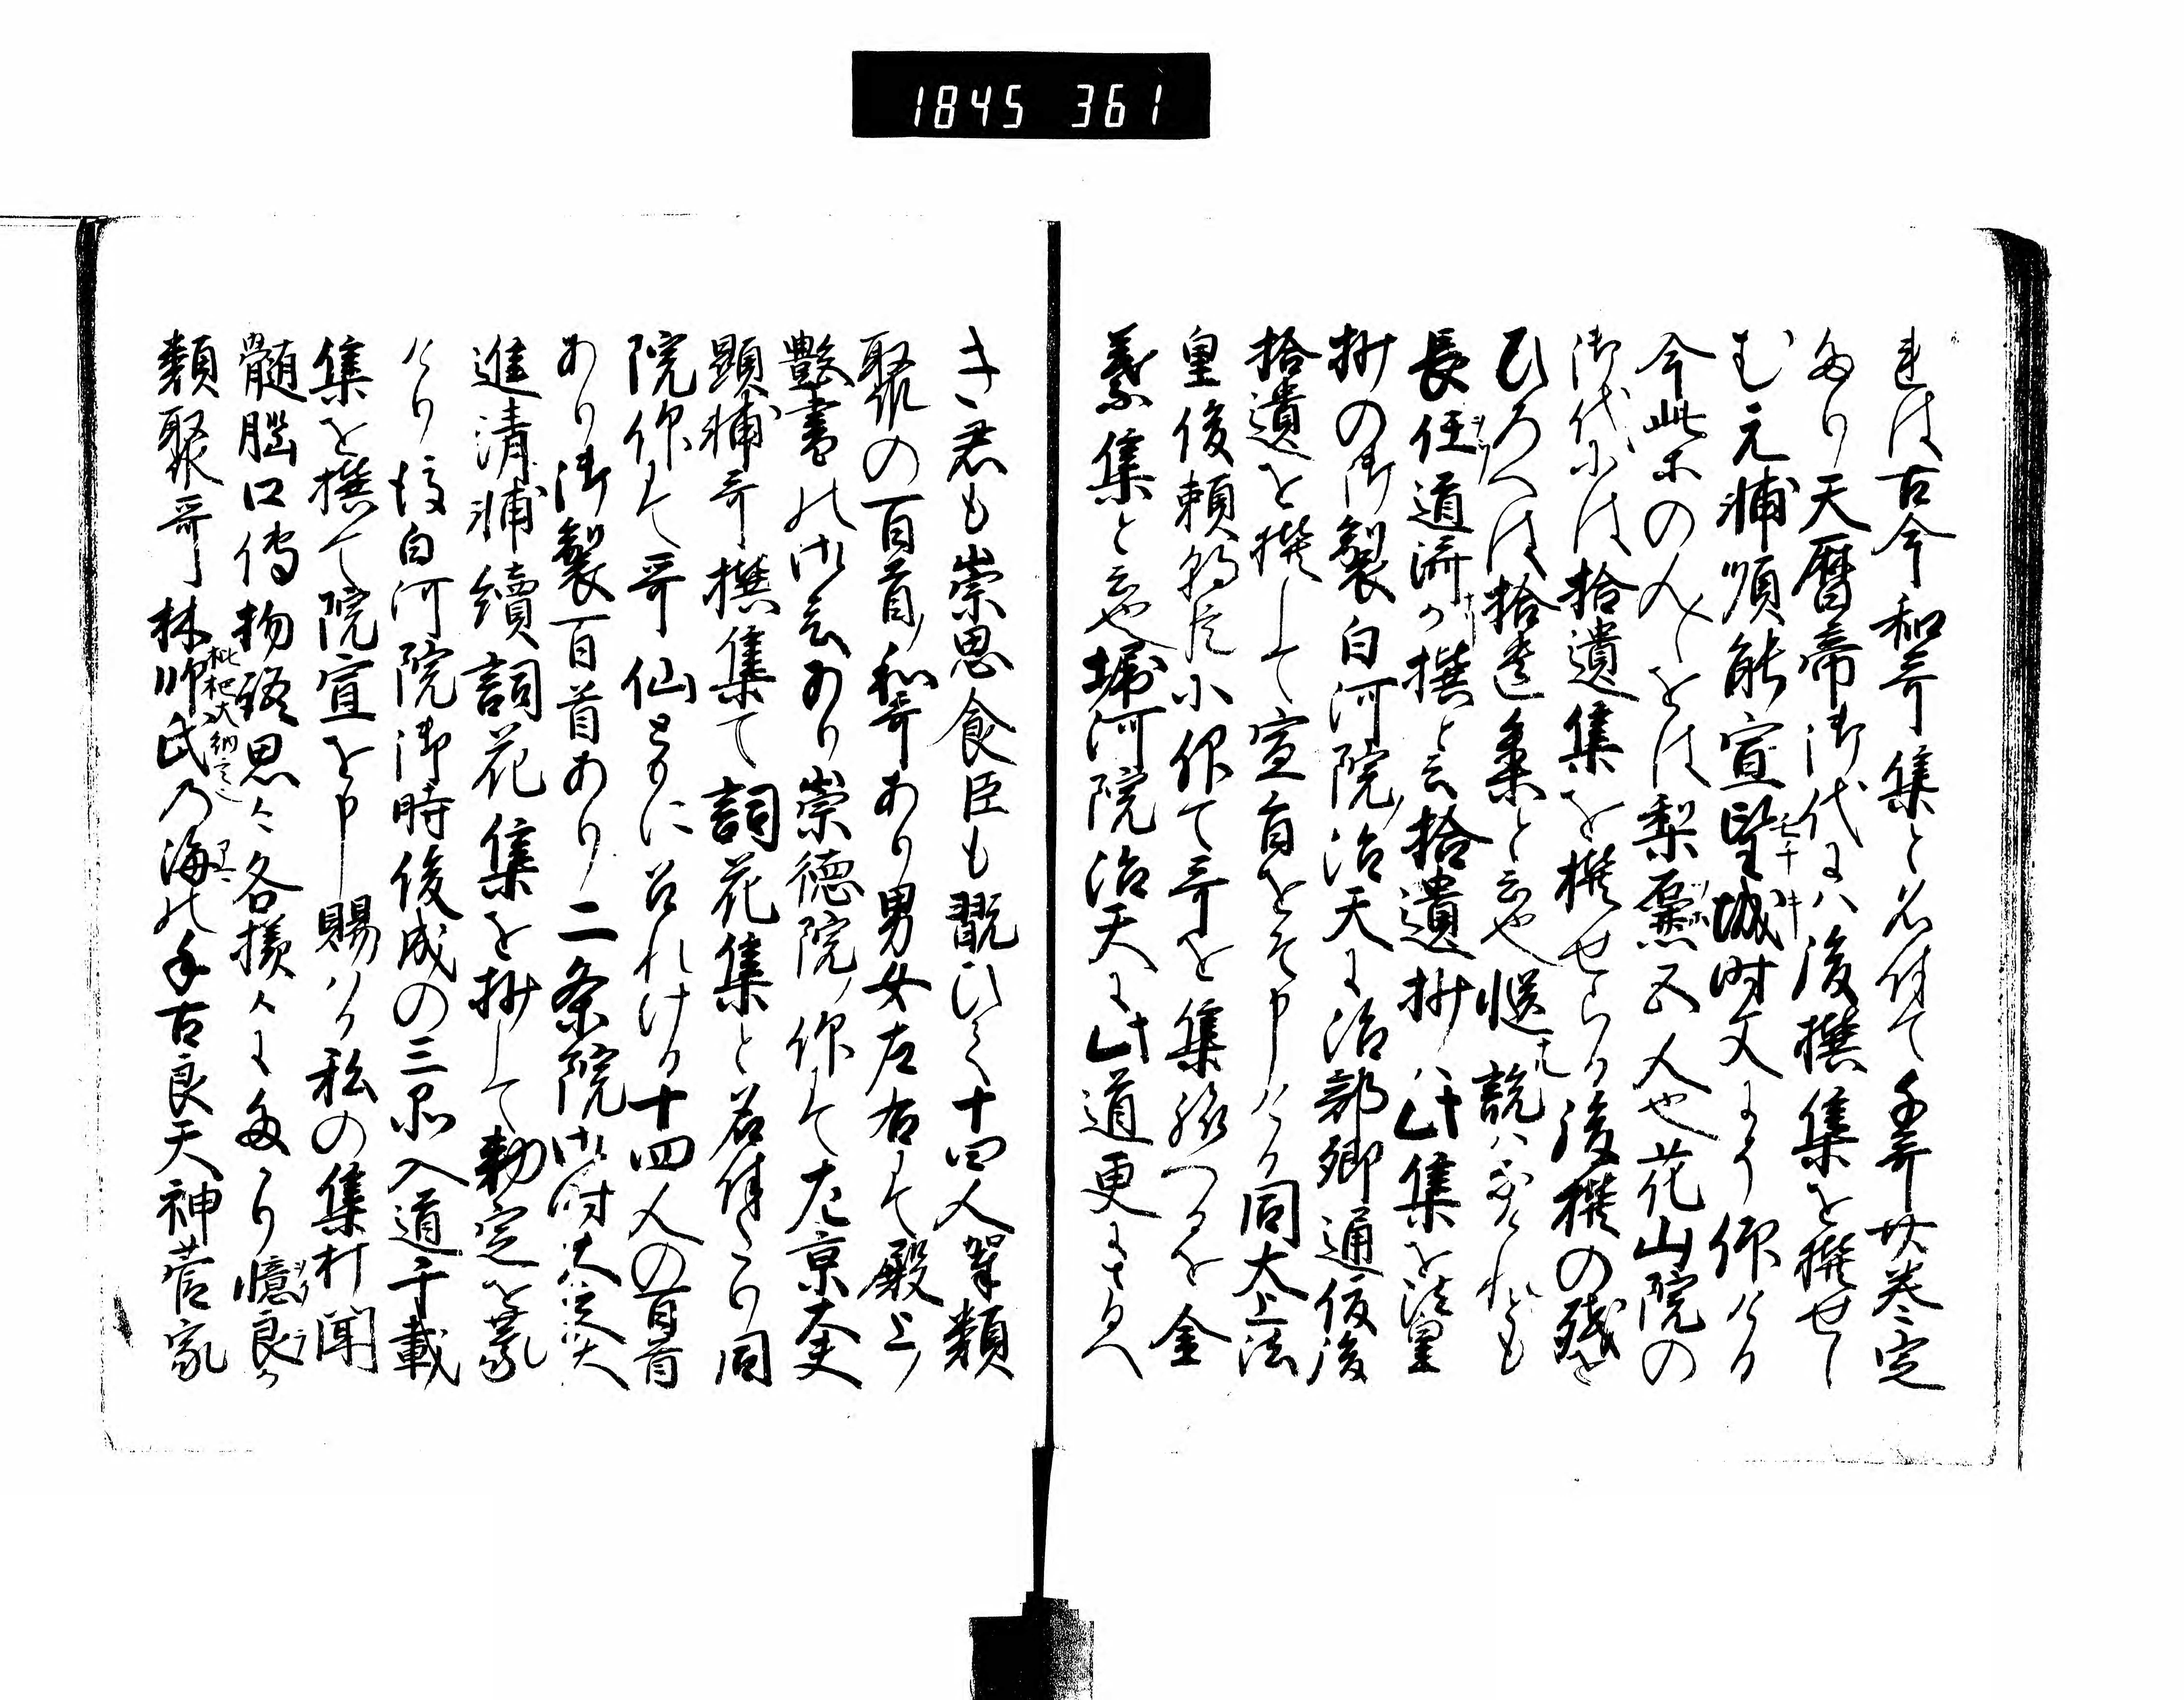 1845 361
れは古今和哥集と名付て千哥廿巻定
めり天暦帝御代にハ後撰集を撰せし
む元輔順能宣望城時文より仰ける
今此等の人〻をは梨壷五人也花山院の
御代には拾遺集を撰せらる後撰の残を
ひろへは拾遺集と云也 説ハあれとも
長能道済か撰と云拾遺抄ハ此集を法皇
抄の御製白河院治天に治部卿通俊後
拾遺を撰して宣旨をそ申ける同太上法
皇俊頼朝臣に仰て哥を集給つるを金
葉集と云也堀河院治天に此道更にさるへ
き君も崇思食臣も翫ひて十四人挙類
聚の百首和哥あり男女左右にて殿上ノ
艶書の御会あり崇徳院ノ仰にて左京大夫
顕輔哥撰集て詞花集と名付たり同
院仰にて哥仙ともに召れける十四人の百首
あり御製百首あり二条院御時大宮大
進清輔續詞花集を抄して勅定を蒙
けり後白河院御時俊成の三品入道千載
集を撰て院宣を申賜けり私の集打聞
髄脳口傳物語思〻各様〻にあり憶良か
類聚哥林帥氏乃海の千古良天神菅家
枇杷大納言